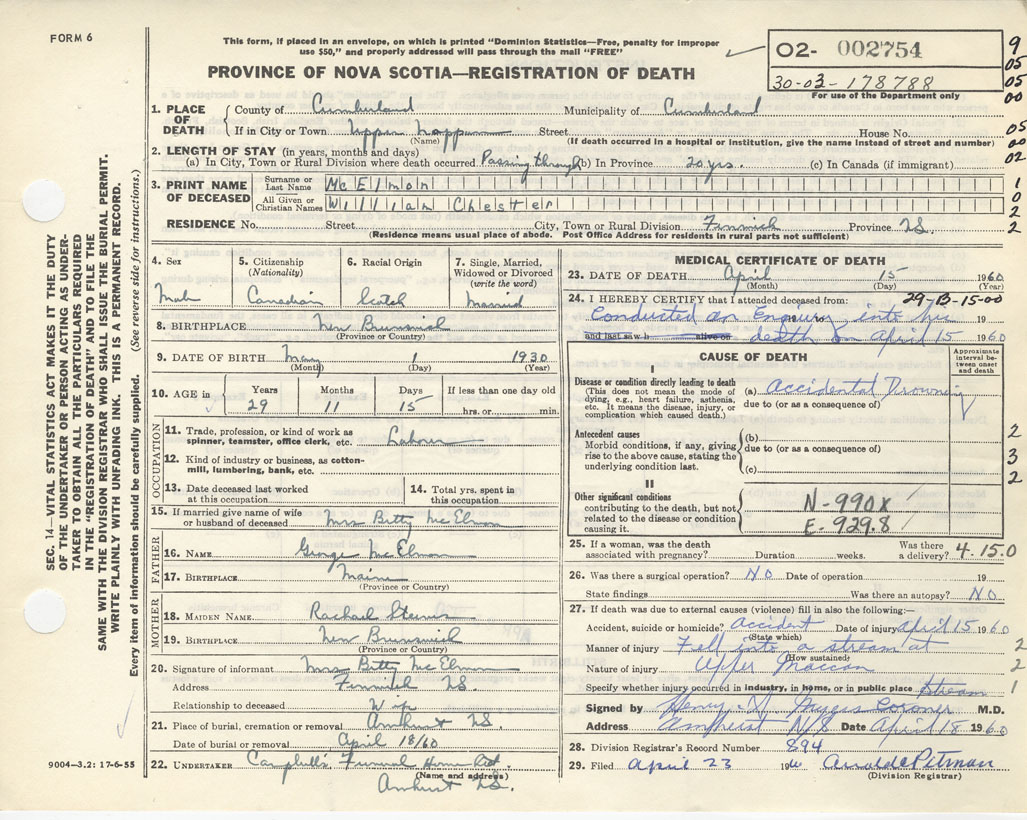 FORM 6
This form, if placed in an envelope, on which is printed "Dominion Statistics—Free, penalty for improper
use $50," and properly addressed will pass through the mail "FREE"
02- 002754
30-03-178788
For use of the Department only
9
05
05
00
PROVINCE OF NOVA SCOTIA—REGISTRATION OF DEATH
1. PLACE OF DEATH
County of Cumberland Municipality of Cumberland
If in City or Town Upper Nappan Street House No.
(Name) (If death occurred in a hospital or institution, give the name instead of street and number)
05
00
02
2. LENGTH OF STAY (in years, months and days)
(a) In City, Town or Rural Division where death occurred Passing through (b) In Province 20 yrs. (c) In Canada (if immigrant)
3. PRINT NAME OF DECEASED
Surname or Last Name McElman
All Given or Christian Names William Chester
1
0
2
2
RESIDENCE No. Street City, Town or Rural Division Fenwick Province NS.
(Residence means usual place of abode. Post Office Address for residents in rural parts not sufficient)
SEC. 14—VITAL STATISTICS ACT MAKES IT THE DUTY
OF THE UNDERTAKER OR PERSON ACTING AS UNDER-
TAKER TO OBTAIN ALL THE PARTICULARS REQUIRED
IN THE "REGISTRATION OF DEATH" AND TO FILE THE
SAME WITH THE DIVISION REGISTRAR WHO SHALL ISSUE THE BURIAL PERMIT.
WRITE PLAINLY WITH UNFADING INK. THIS IS A PERMANENT RECORD.
Every item of information should be carefully supplied. (See reverse side for instructions.)
4. Sex
Male
5. Citizenship
(Nationality)
Canadian
6. Racial Origin
Scotch
7. Single, Married,
Widowed or Divorced
(write the word)
Married
8. BIRTHPLACE New Brunswick
(Province or Country)
9. DATE OF BIRTH May 1 1930
(Month) (Day) (Year)
10. AGE in
Years 29
Months 11
Days 15
If less than one day old
hrs. or min.
OCCUPATION
11. Trade, profession, or kind of work as
spinner, teamster, office clerk, etc. Laborer
12. Kind of industry or business, as cotton-
mill, lumbering, bank, etc.
13. Date deceased last worked
at this occupation
14. Total yrs. spent in
this occupation
15. If married give name of wife
or husband of deceased Mrs Betty McElman
FATHER
16. NAME George McElman
17. BIRTHPLACE Maine
(Province or Country)
MOTHER
18. MAIDEN NAME Rachael
19. BIRTHPLACE New Brunswick
(Province or Country)
20. Signature of informant Mrs Betty McElman
Address Fenwick NS.
Relationship to deceased Wife
21. Place of burial, cremation or removal Amherst NS.
Date of burial or removal April 18/60
22. UNDERTAKER Campbell's Funeral Home Ltd.
(Name and address)
Amherst NS.
9004—3.2: 17-6-55
MEDICAL CERTIFICATE OF DEATH
23. DATE OF DEATH April 15 1960
(Month) (Day) (Year)
24. I HEREBY CERTIFY that I attended deceased from: 29-B-15-00
Conducted an Enquiry into his 19
and last saw h alive on death on April 15 1960
CAUSE OF DEATH
Approximate
interval be-
tween onset
and death
I
Disease or condition directly leading to death
(This does not mean the mode of
dying, e.g., heart failure, asthenia,
etc. It means the disease, injury, or
complication which caused death.)
(a) Accidental Drowning
due to (or as a consequence of)
Antecedent causes
Morbid conditions, if any, giving
rise to the above cause, stating the
underlying condition last.
(b)
due to (or as a consequence of)
(c)
2
3
2
II
Other significant conditions
contributing to the death, but not
related to the disease or condition
causing it.
N-990X
E-929.8
25. If a woman, was the death
associated with pregnancy? Duration weeks. Was there
a delivery? 4.15.0
26. Was there a surgical operation? NO Date of operation 19
State findings Was there an autopsy? NO
27. If death was due to external causes (violence) fill in also the following:—
Accident, suicide or homicide? Accident Date of injury April 15 1960
(State which)
Manner of injury Fell into a stream at 2
(How sustained)
Nature of injury Upper Maccan 2
Specify whether injury occurred in industry, in home, or in public place Stream 1
Signed by Henry Coroner M.D.
Address Amherst N/S Date April 18 1960
28. Division Registrar's Record Number 894
29. Filed April 23 1960
(Division Registrar)